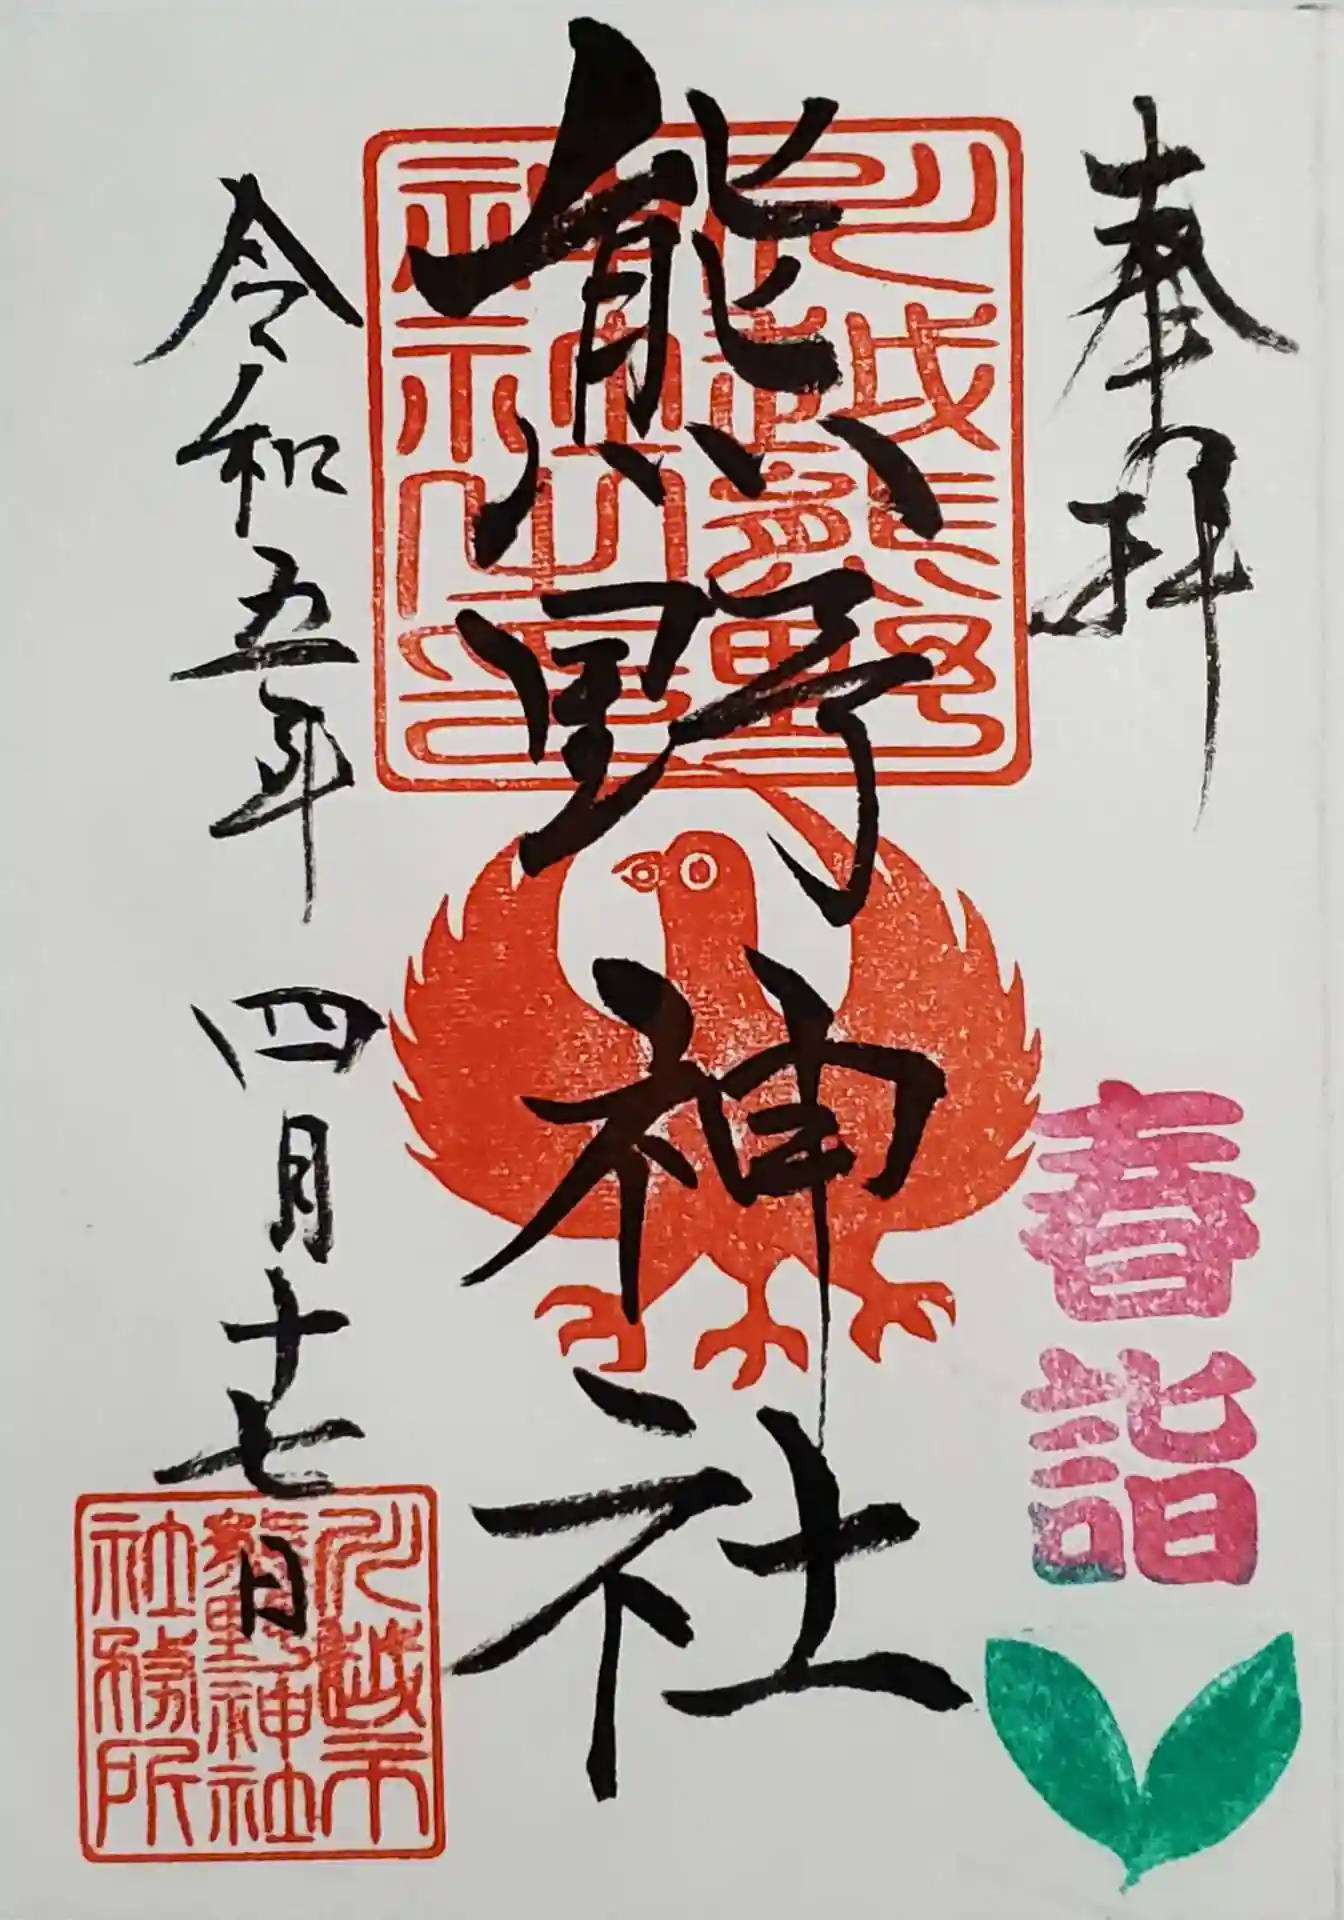 奉拝
春詣
川越熊野
神社之印
熊野神社
令和五年 四月十七日
川越市
熊野神社
社務所